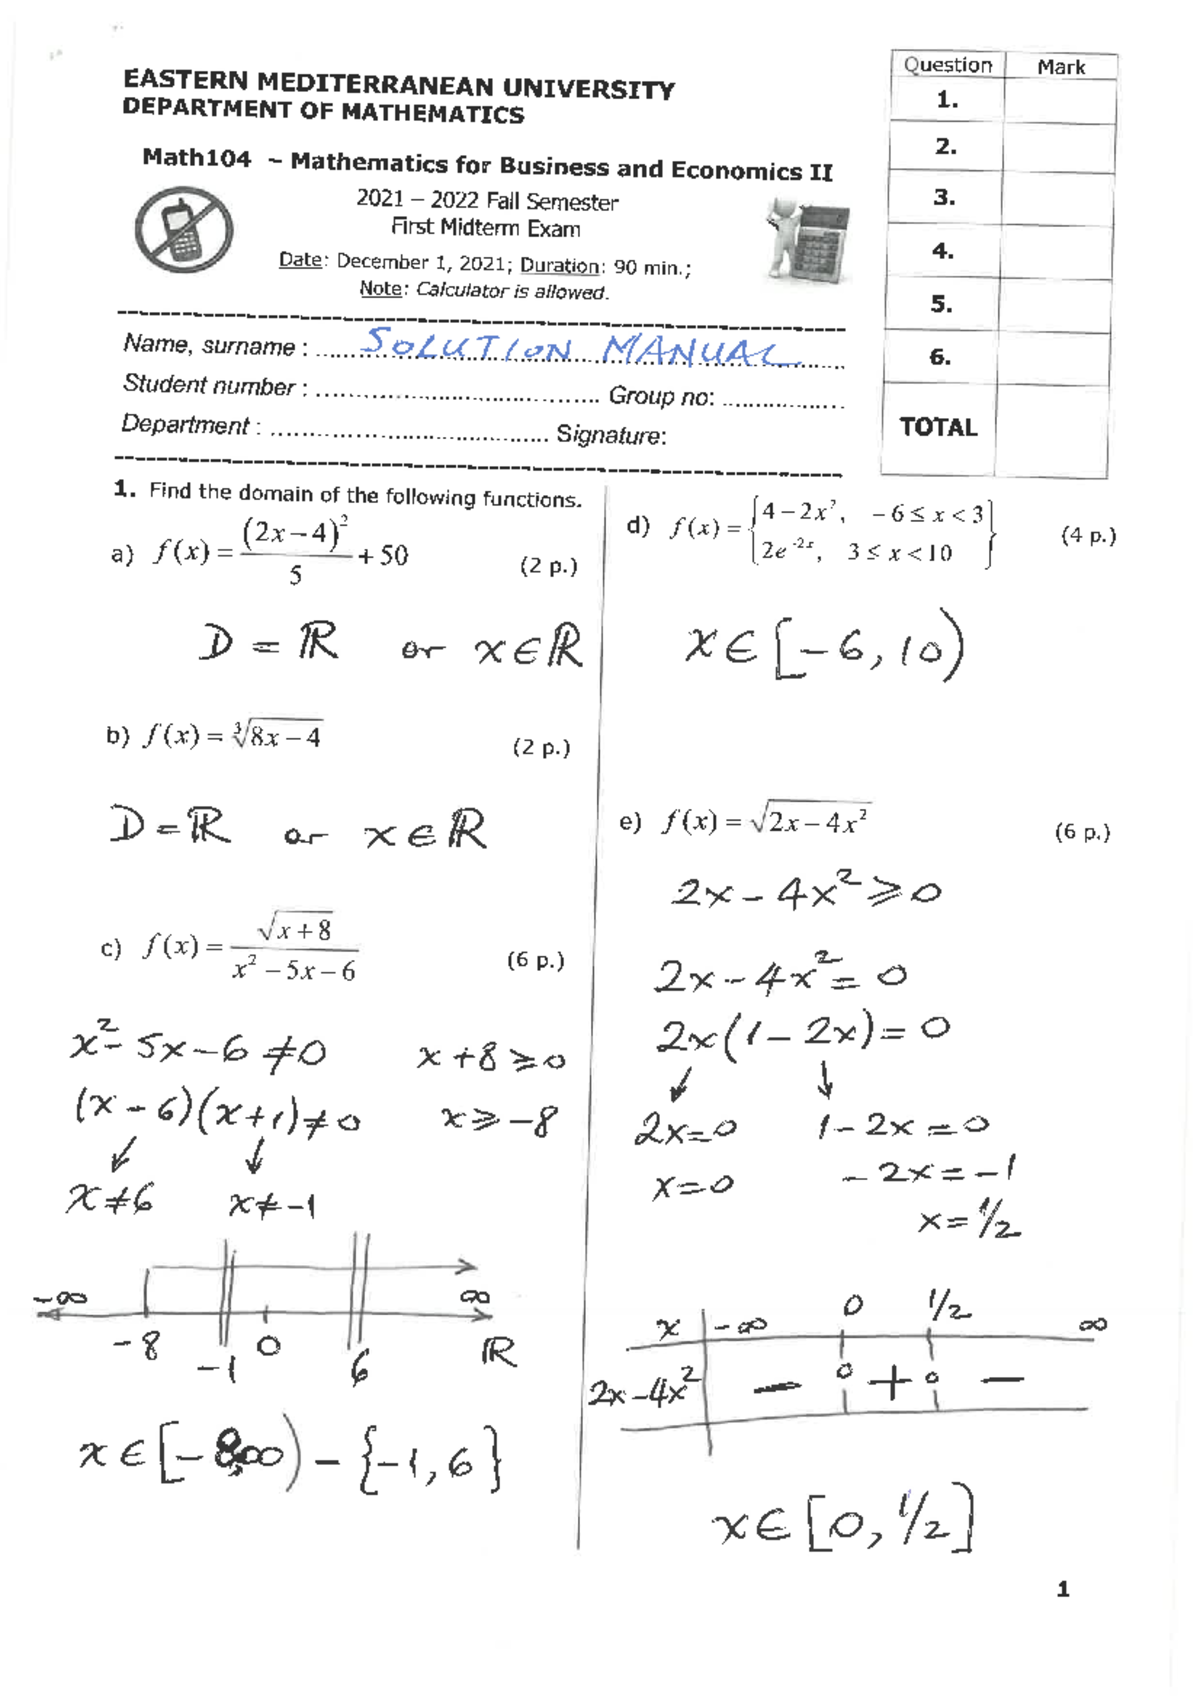 EASTERN MEDITERRANEAN UNIVERSITY
DEPARTMENT OF MATHEMATICS
Math104 – Mathematics for Business and Economics II
2021 – 2022 Fall Semester
First Midterm Exam
Date: December 1, 2021; Duration: 90 min.;
Note: Calculator is allowed.
Question Mark
1.
2.
3.
4.
5.
6.
TOTAL
Name, surname : SOLUTION MANUAL
Student number : .................................... Group no: .................
Department : ..................................... Signature:
1. Find the domain of the following functions.
a) f(x) = (2x – 4)² / 5 + 50 (2 p.)
D = ℝ or x ∈ ℝ
b) f(x) = ∛(8x – 4) (2 p.)
D = ℝ or x ∈ ℝ
c) f(x) = √(x + 8) / (x² – 5x – 6) (6 p.)
x² – 5x – 6 ≠ 0 x + 8 ⩾ 0
(x – 6)(x + 1) ≠ 0 x ⩾ –8
↙ ↓
x ≠ 6 x ≠ –1
–∞ ∞
–8 –1 0 6 ℝ
x ∈ [–8,∞) – {–1, 6}
d) f(x) = {4 – 2x², – 6 ≤ x < 3
2e⁻²ˣ, 3 ≤ x < 10} (4 p.)
x ∈ [–6, 10)
e) f(x) = √(2x – 4x²) (6 p.)
2x – 4x² ⩾ 0
2x – 4x² = 0
2x(1 – 2x) = 0
↙ ↓
2x = 0 1 – 2x = 0
x = 0 – 2x = –1
x = 1/2
x –∞ 0 1/2 ∞
2x – 4x² – 0 + 0 –
x ∈ [0, 1/2]
1